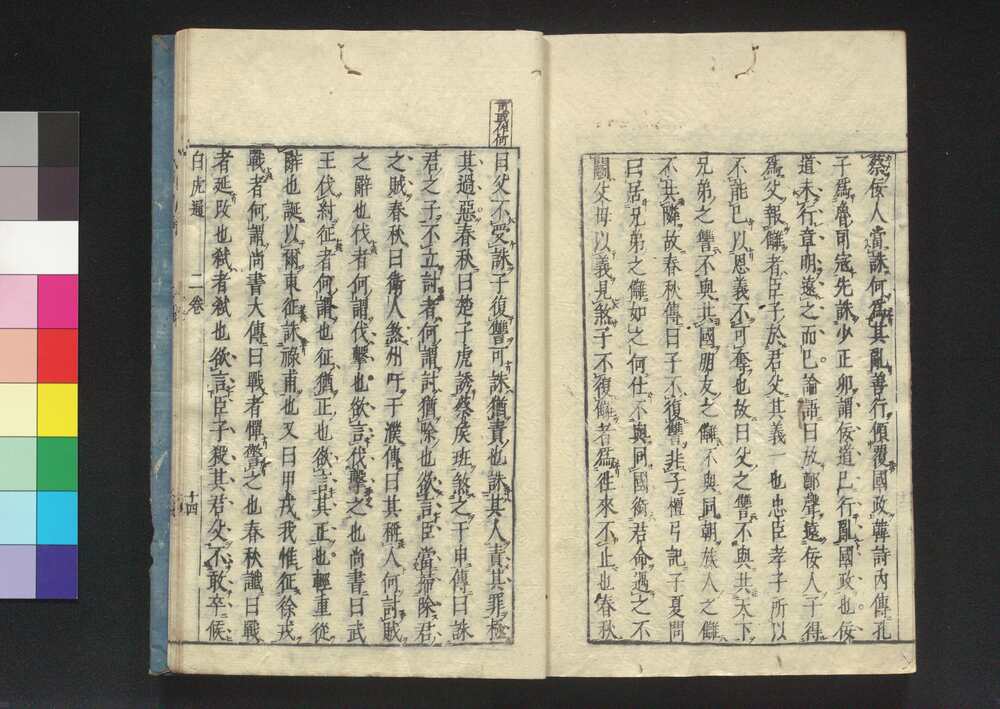 蔡佞人當誅何爲其亂善行傾覆國政韓詩內傳孔
子爲魯司寇先誅少正卯謂佞道已行亂國政也佞
道未行章明遠之而已論語曰放鄭聲遠佞人子得
爲父報讎者臣子於君父其義一也忠臣孝子所以
不能已以恩義不可奪也故曰父之讐不與共天下
兄弟之讐不與共國朋友之讎不與同朝族人之讎
不共隣故春秋傳曰子不復讐非子檀弓記子夏問
曰居兄弟之讎如之何仕不與同國銜君命遇之不
鬪父母以義見煞子不復讎者爲徃來不止也春秋
曰父不受誅子復讐可誅猶責也誅其人責其罪極
其過惡春秋曰楚子虎誘蔡侯班煞之于申傳曰誅
君之子不立討者何謂討猶除也欲言臣當掃除君
之賊春秋曰衛人煞州吁于濮傳曰其稱人何討賊
之辭也伐者何謂伐擊也欲言伐擊之也尚書曰武
王伐紂征者何謂也征猶正也欲言其正也輕重從
辭也誕以爾東征誅祿甫也又曰甲戌我惟征徐戎
戰者何謂尚書大傳曰戰者憚警之也春秋讖曰戰
者延攺也弑者弑也欲言臣子殺其君父不敢卒候
白虎通 二卷 十四